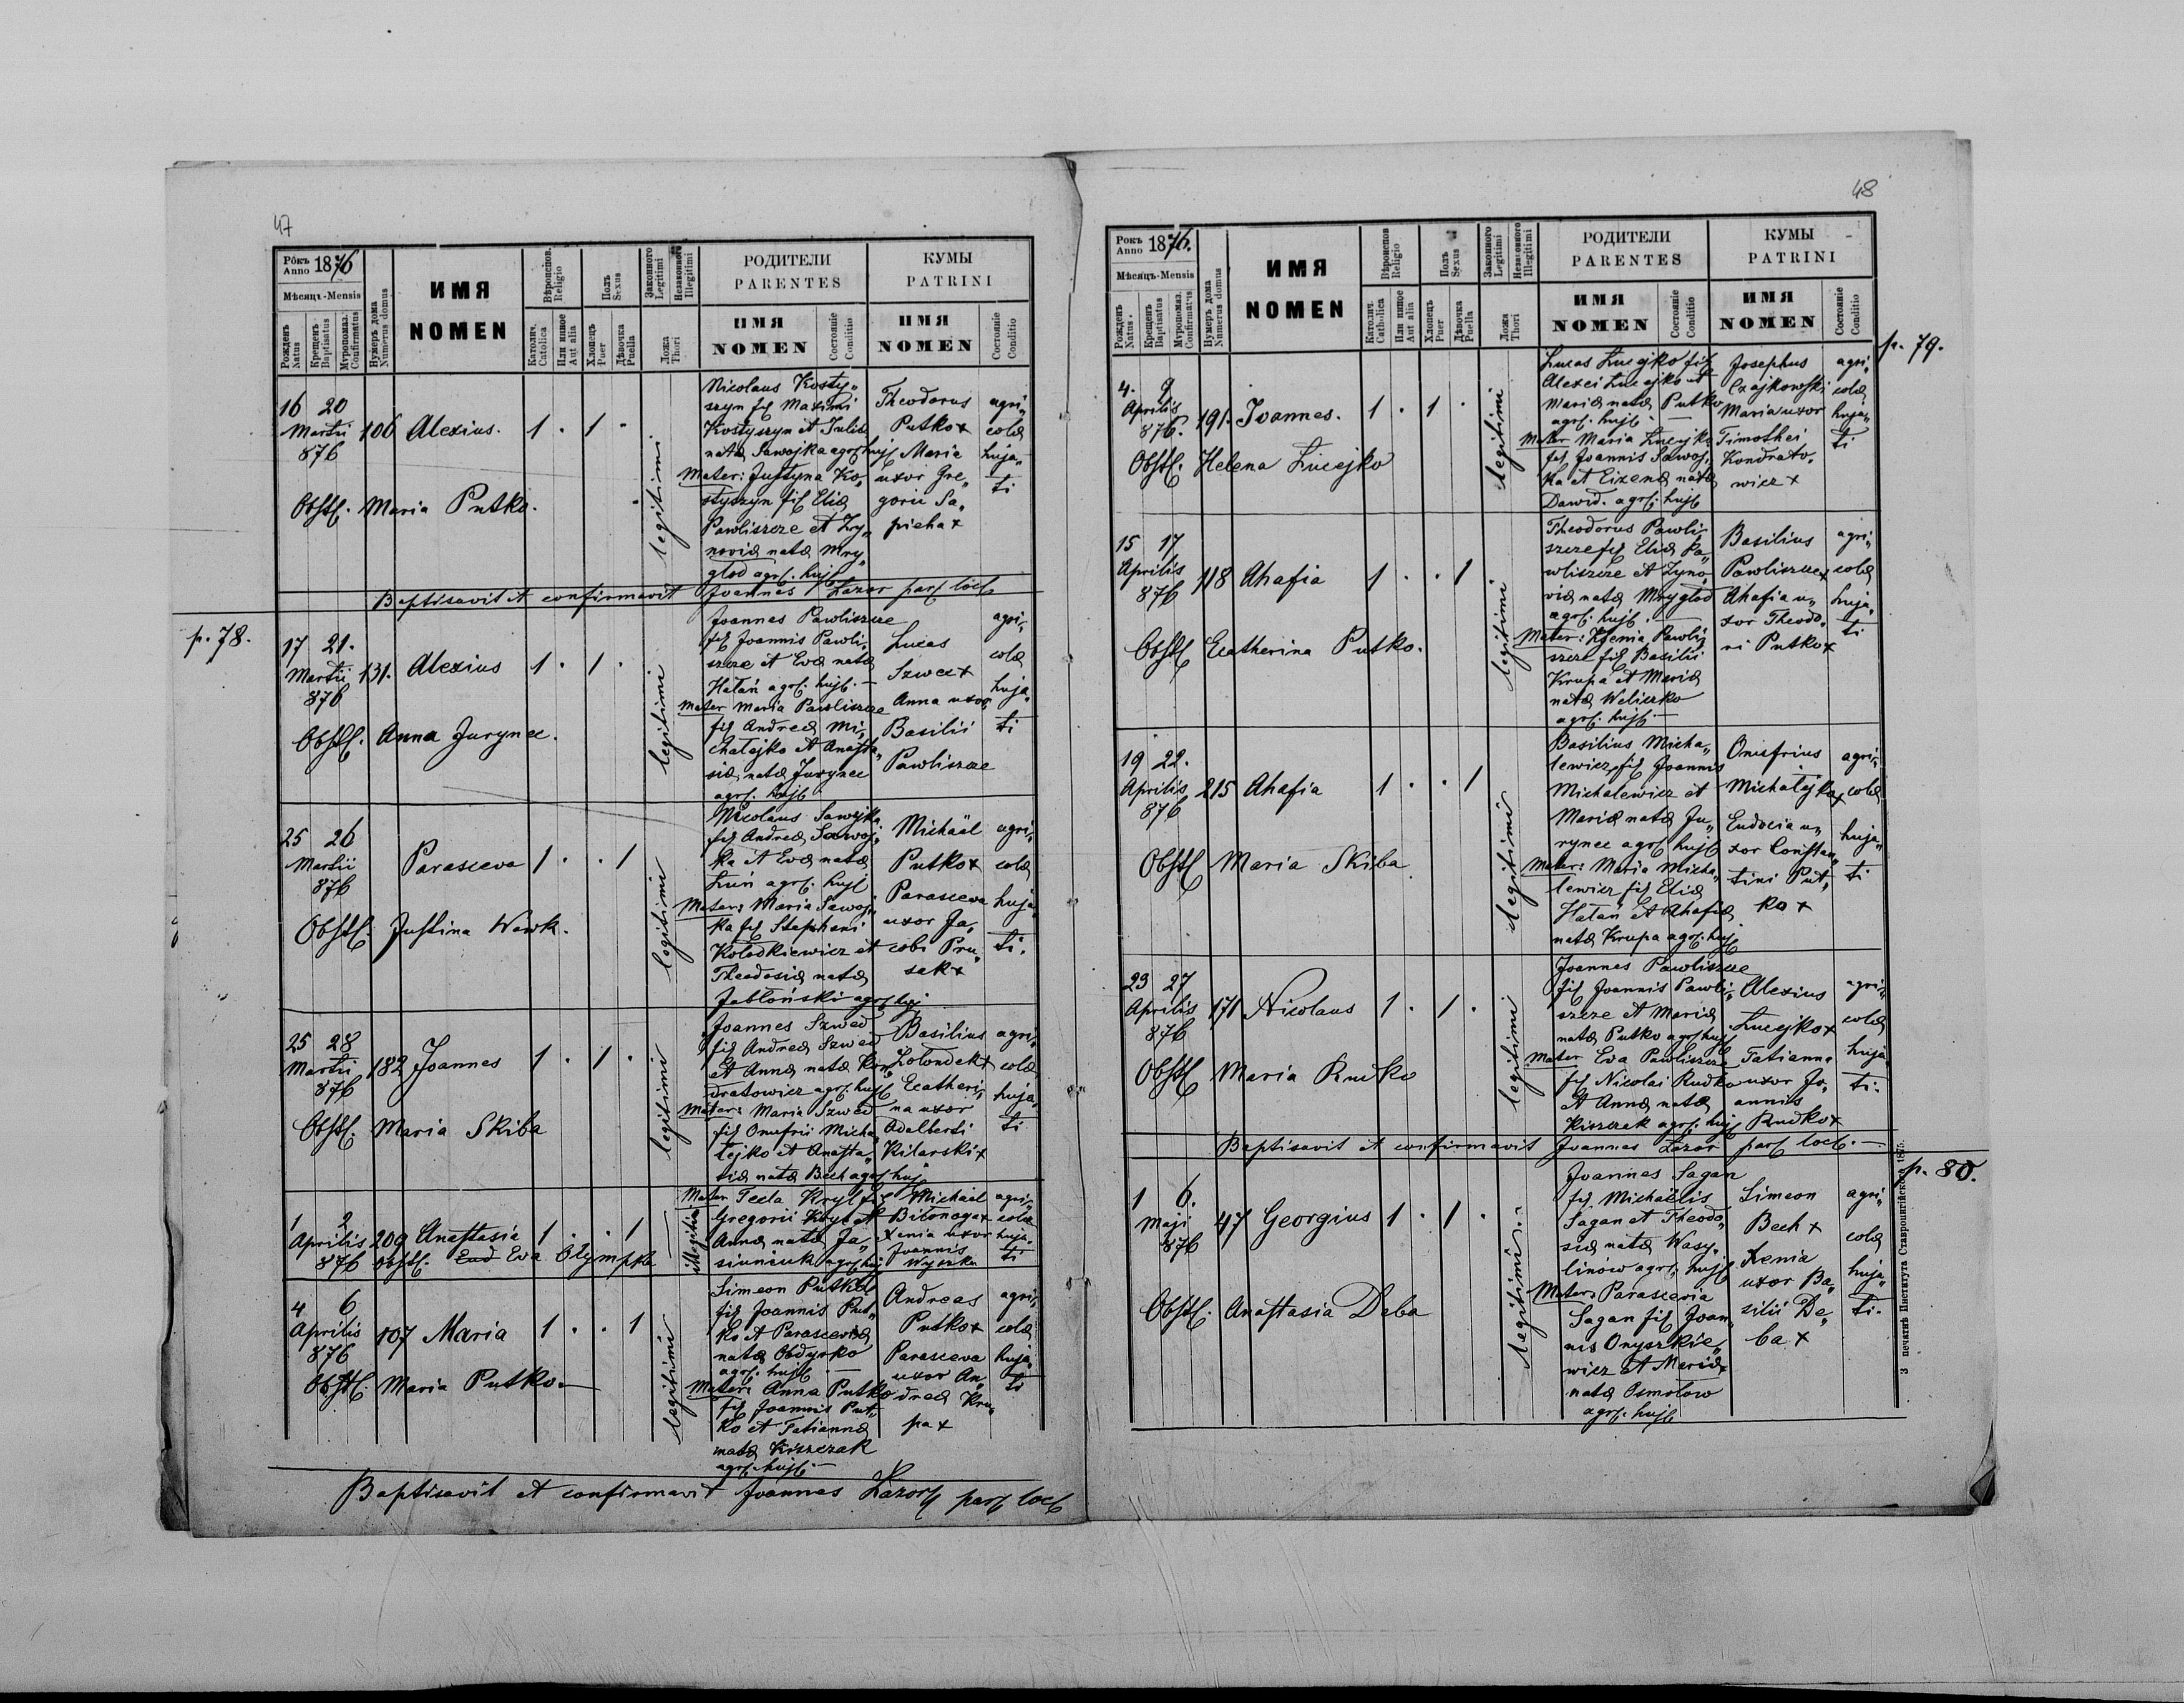 47
Рôкъ Anno 1876
Мѣсяцъ-Mensis
Рожденъ Natus
Крещенъ Baptisatus
Мѵропомаз. Confirmatus
Нумеръ дома Numerus domus
ИМЯ
NOMEN
Вѣроиспов. Religio
Католич. Catolica
Или инное Aut alia
Полъ Sexus
Хлопецъ Puer
Дѣвочка Puella
Законного Legitimi
Незаконного Illegitimi
Ложа Thori
РОДИТЕЛИ
PARENTES
ИМЯ
NOMEN
Состояніе Conditio
КУМЫ
PATRINI
ИМЯ
NOMEN
Состояніе Conditio
16 20 Martii 876
106 Alexius. 1 . 1 .
legitimi
Nicolaus Kosty„
szyn fil Maximi
Kostyszyn et Julia
nata Sawojka agr. huj
Mater: Justyna Ko„
styszyn fil Elia
Pawliszcze et Zy„
novia nata Mry„
glod agr. huj
Theodorus
Putko x
Maria
uxor Gre„
gorii Sa„
pieha x
agri„
cola
huja„
ti
Obst. Maria Putko.
Baptisavit et confirmavit Joannes Lazor par loc
p. 78.
17 21. Martii 876
131. Alexius 1 . 1 .
legitimi
Joannes Pawliszcze
fil Joannis Pawli„
szcze et Eva nata
Hatań agr. huj. —
Mater Maria Pawliszcze
fil Andrea Mi„
chatajko et Anasta„
sia nata Jurynec
agr. huj
Lucas
Szwec x
Anna uxor
Basilii
Pawliszcze
agri„
cola
huja„
ti
Obst. Anna Jurynec.
25 26 Martii 876
Parasceva 1 . . 1
legitimi
Nicolaus Sawojka
fil Andrea Sawoj„
ka et Eva nata
Luń agr. huj
Mater: Maria Sawoj„
ka fil Stephani
Kolodkiewicz et
Theodosia nata
Jabłoński agr. huj.
Michaël
Putko x
Parasceva
uxor Ja„
cobi Pru„
sak x
agri„
cola
huja„
ti.
Obst. Justina Wawk.
25 28 Martii 876
182 Joannes 1 . 1 .
legitimi
Joannes Szwed
fil Andrea Szwed
et Anna nata Kon„
dratowicz agr. huj
Mater: Maria Szwed
fil Onufrii Micha„
tejko et Anasta„
sia nata Bech agr. huj
Basilius
Zolondek x
Ecatheri„
na uxor
Adalberti
Kilarski x
agri„
cola
huja„
ti
Obst. Maria Skiba
1 2 Aprilis 876
209 Anastasia 1 . . 1
illegitimi
Mater Tecla Kryl fil
Gregorii Kryl et
Anna nata Ja„
siuniuk agr. huj
Michael
Bilonoga x
Xenia uxor
Joannis
Wyszka
agri„
cola
huja„
ti
Obst. Eva Olympka
4 6 Aprilis 876
107 Maria 1 . . 1
legitimi
Simeon Putko
fil Joannis Put„
ko et Parascevia
nata Obdyrko
agr. huj. —
Mater: Anna Putko
fil Joannis Put„
ko et Tatianna
nata Kiszczak
agr. huj. —
Andreas
Putko x
Parasceva
uxor An„
drea Kru„
pa x
agri„
cola
huja„
ti
Obst. Maria Putko. —
Baptisavit et confirmavit Joannes Lazor par loc
48
Рокъ Anno 1876.
Мѣсяцъ-Mensis
Рожденъ Natus.
Крещенъ Baptisatus
Мѵропомаз. Confirmatus
Нумеръ дома Numerus domus
ИМЯ
NOMEN
Вѣроиспов Religio
Католич. Catholica
Или инное Aut alia
Полъ Sexus
Хлопецъ Puer
Дѣвочка Puella
Законного Legitimi
Незаконного Illegitimi
Ложа Thori
РОДИТЕЛИ
PARENTES
ИМЯ
NOMEN
Состояніе Conditio
КУМЫ
PATRINI
ИМЯ
NOMEN
Состояніе Conditio
p. 79.
4. 9 Aprilis 876.
191. Joannes. 1 . 1 .
legitimi
Lucas Lucejko fil
Alexei Lucejko et
Maria nata Putko
agr. huj. —
Mater Maria Lucejko
fil Joannis Sawoj„
ka et Eizena nata
Dawid. agr. huj
Josephus
Czajkowski
Maria uxor
Timothei
Kondrato„
wicz x
agri„
cola
huja„
ti
Obst. Helena Lucejko
15 17 Aprilis 876
118 Ahafia 1 . . 1
legitimi
Theodorus Pawli„
szcze fil Elia Pa„
wliszcze et Zyno„
via nata Mryglod
agr. huj. —
Mater: Xenia Pawli„
szcze fil Basilii
Krupa et Maria
nata Weliczko
agr. huj. —
Basilius
Pawliszcze x
Ahafia u„
xor Theodo„
ri Putko x
agri„
cola
huja„
ti
Obst Ecatherina Putko.
19 22. Aprilis 876
215 Ahafia 1 . . 1
legitimi
Basilius Micha„
lewicz fil Joannis
Michalewicz et
Maria nata Ju„
rynec agr. huj
Mater: Maria Micha„
lewicz fil Elia
Hatań et Ahafia
nata Krupa agr. huj
Onufrius
Michatajko x
Eudocia u„
xor Constan„
tini Put„
ko x
agri„
cola
huja„
ti
Obst Maria Skiba
23 27 Aprilis 876
171 Nicolaus 1 . 1 .
legitimi
Joannes Pawliszcze
fil Joannis Pawli„
szcze et Maria
nata Putko agr. huj
Mater Eva Pawliszcze
fil Nicolai Rudko
et Anna nata
Kiszczak agr. huj
Alexius
Lucejko x
Tatianna
uxor Jo„
annis
Rudko x
agri„
cola
huja„
ti.
Obst Maria Rudko
Baptisavit et confirmavit Joannes Lazor par loc. —
p. 80.
1 6. Maji 876
47 Georgius 1 . 1 .
legitimi
Joannes Sagan
fil Michaëlis
Sagan et Theodo„
sia nata Wasy„
linow agr. huj
Mater: Parascevia
Sagan fil Joan„
nis Onyszkie„
wicz et Maria
nata Osmolow
agr. huj
Simeon
Bech x
Xenia
uxor Ba„
silii De„
ba x
agri„
cola
huja„
ti.
Obst. Anastasia Deba
З печатнѣ Института Ставропигійского 1875.